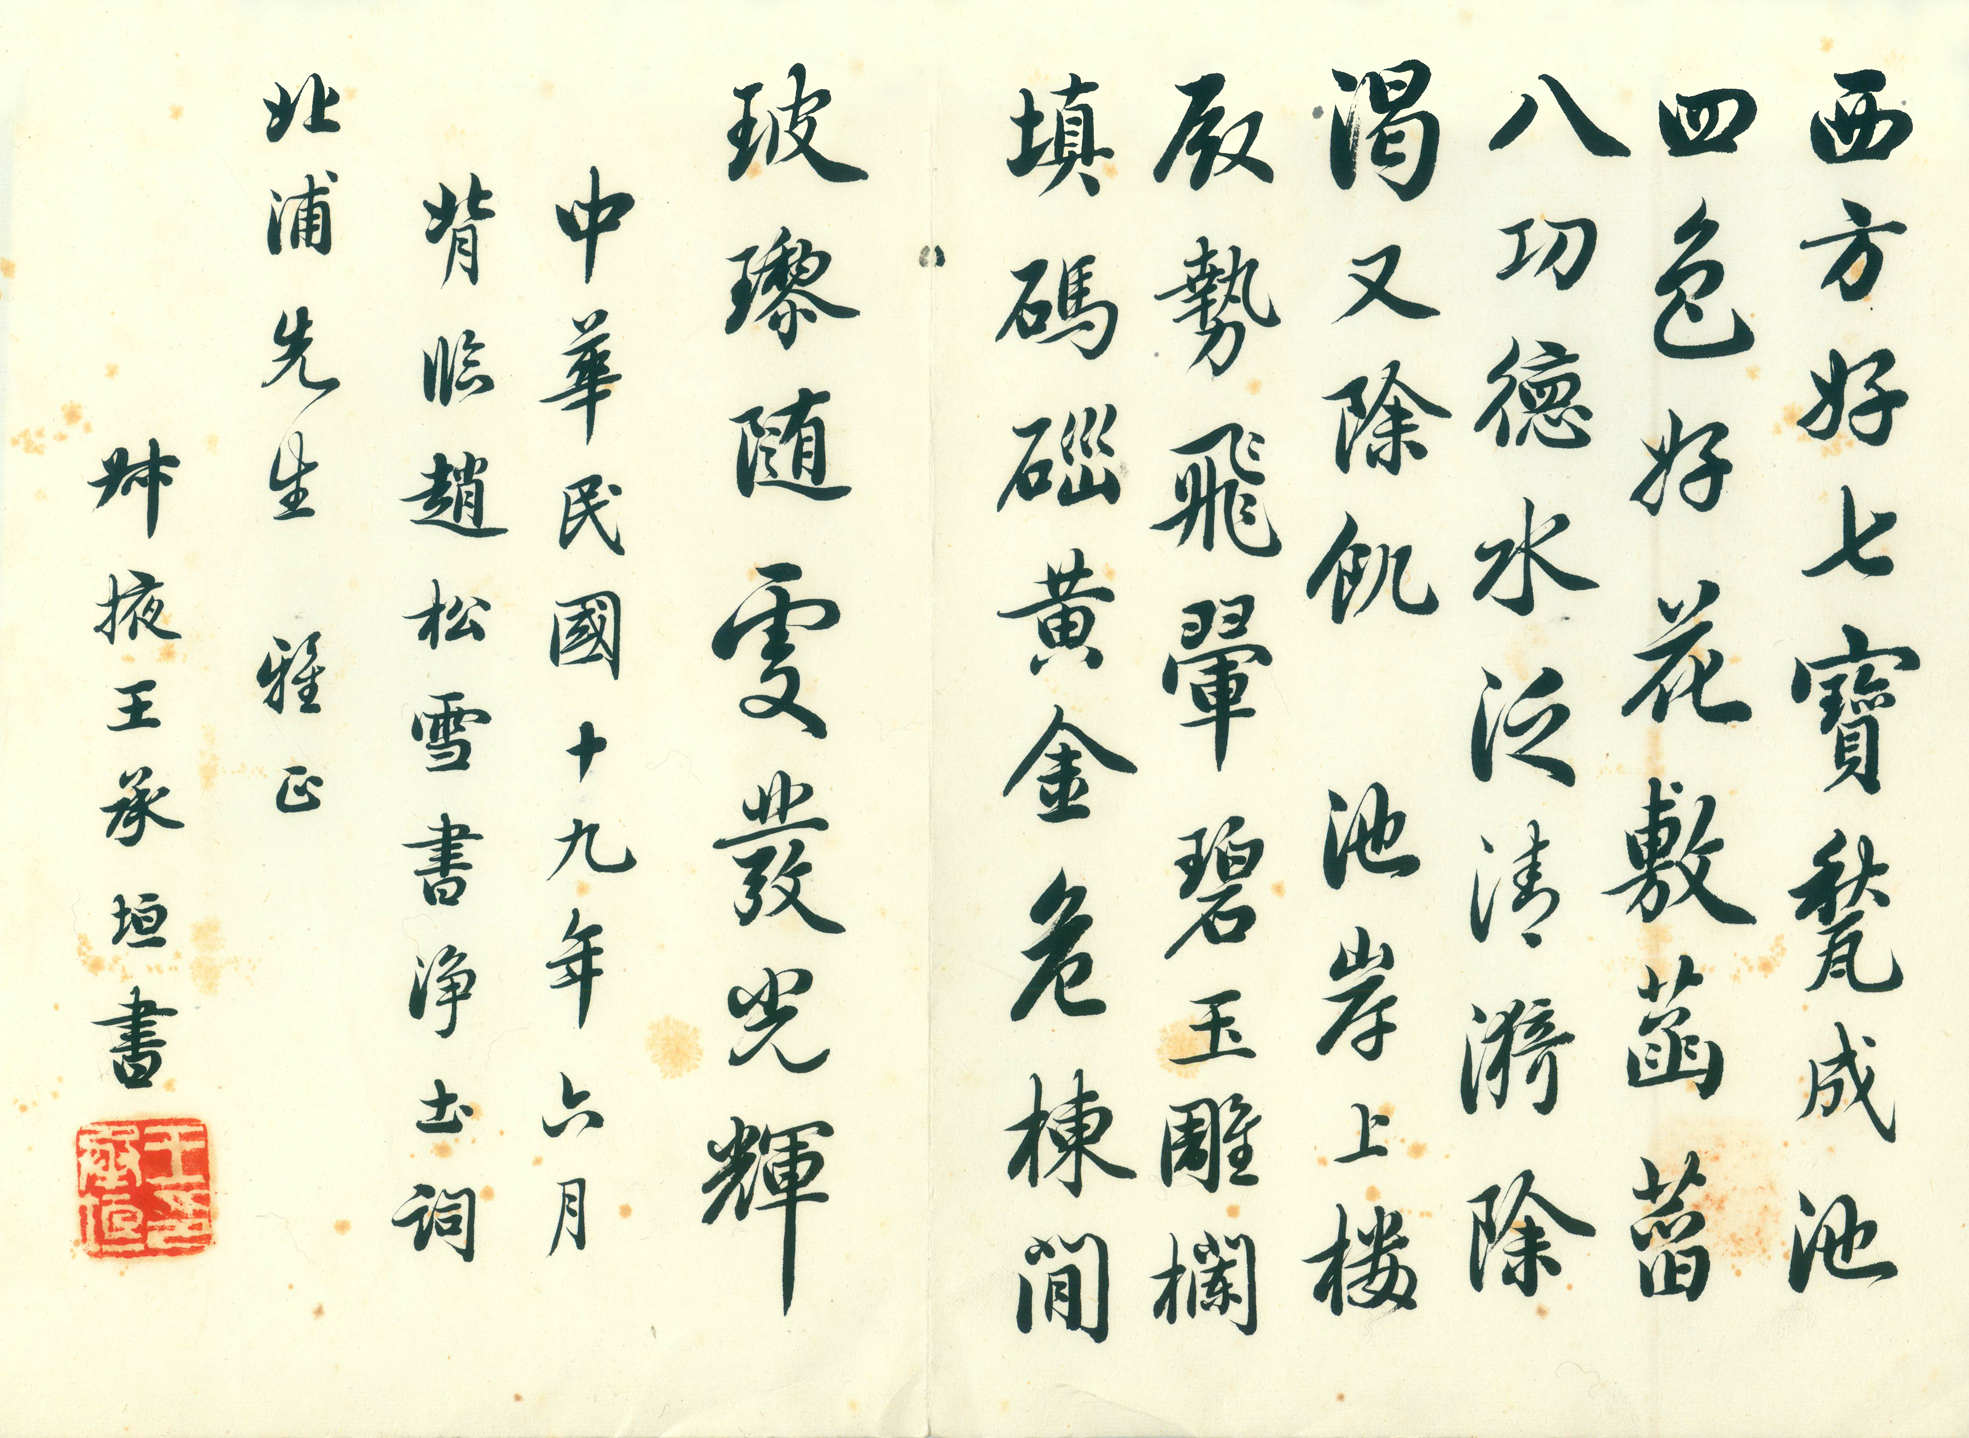 西方好七寶甃成池
四色好花敷菡萏
八功德水泛清漪除
渴又除飢　池岸上樓
殿勢飛翬碧玉雕欄
填碼碯黃金危棟間
玻瓈隨處發光輝
中華民國十九年六月
背臨趙松雪書淨土詞
北浦先生　雅正
掖王承垣書
王承垣